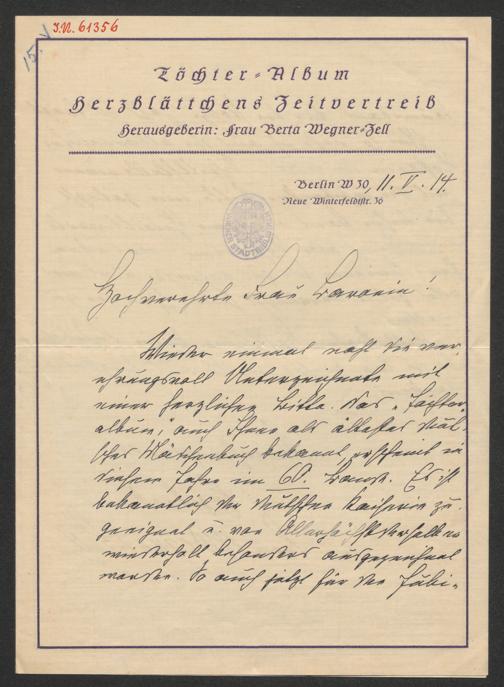 15. V
J.N. 61356
Töchter-Album
Herzblättchens Zeitvertreib
Herausgeberin: Frau Berta Wegner-Zell
Berlin W 30, 11. V. 14.
Neue Winterfeldtstr. 36
WIENER STADTBIBLIOTHEK
Hochverehrte Frau Baronin!
Wieder einmal naht die ver-
ehrungsvoll Unterzeichnete mit
einer herzlichen Bitte. Das "Töchter-
album", auch Ihnen als ältestes deut-
sches Mädchenbuch bekannt, erscheint in
diesem Jahre im 60. Bande. Es ist
bekanntlich der deutschen Kaiserin zu-
geeignet u. von Allerhöchstderselben
wiederholt besonders ausgezeichnet
worden. So auch jetzt für den Jubi-